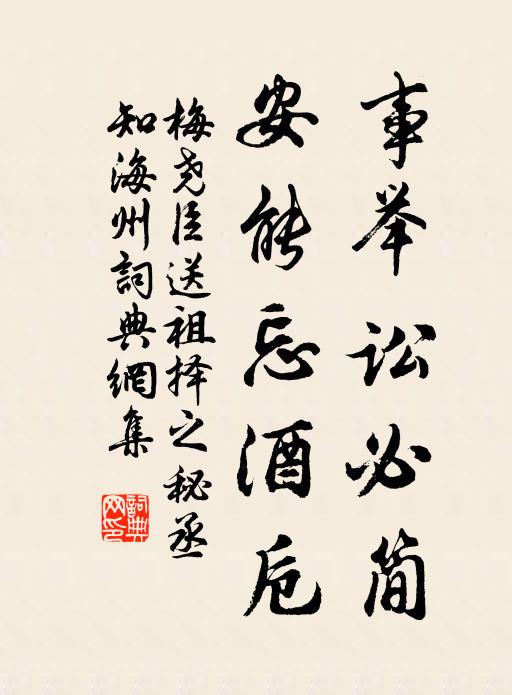 事举讼必简
安能忘酒卮
梅尧臣送祖择之秘丞
知海州詞典網集
詞典
网印